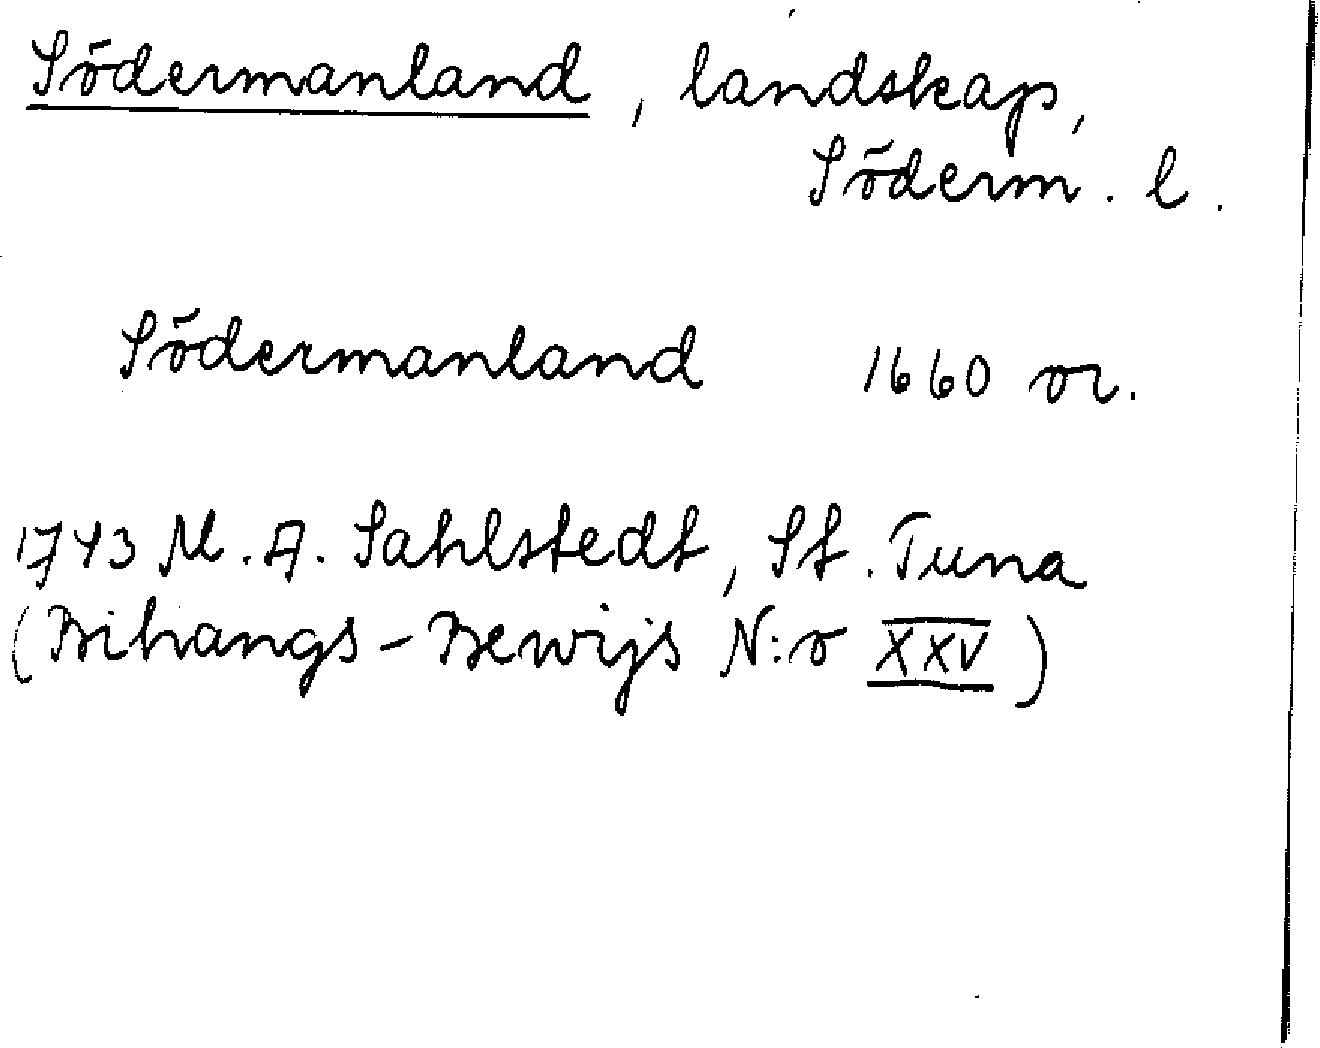 Södermanland, landskap,
Söderm. l.
Södermanland 1660 or.
1743 M. A. Sahlstedt, St. Tuna
(Bihangs-Bewijs N:o XXV)